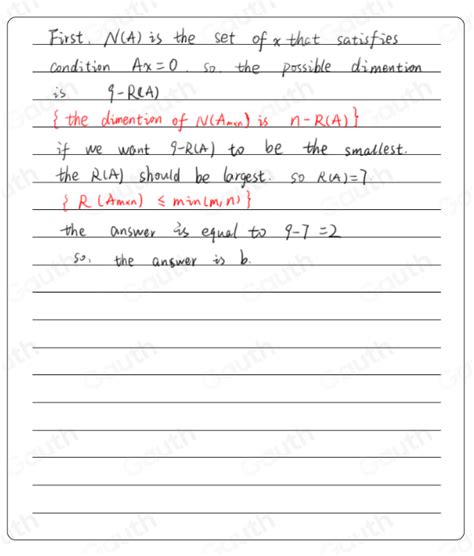 First. N(A) is the set of x that satisfies
condition Ax=0. so. the possible dimention
is 9-R(A)
{ the dimention of N(Am×n) is n-R(A)}
if we want 9-R(A) to be the smallest.
the R(A) should be largest. so R(A)=7.
{ R (Am×n) ≤ min(m,n)}
the answer is equal to 9-7=2
so, the answer is b.
Gauth